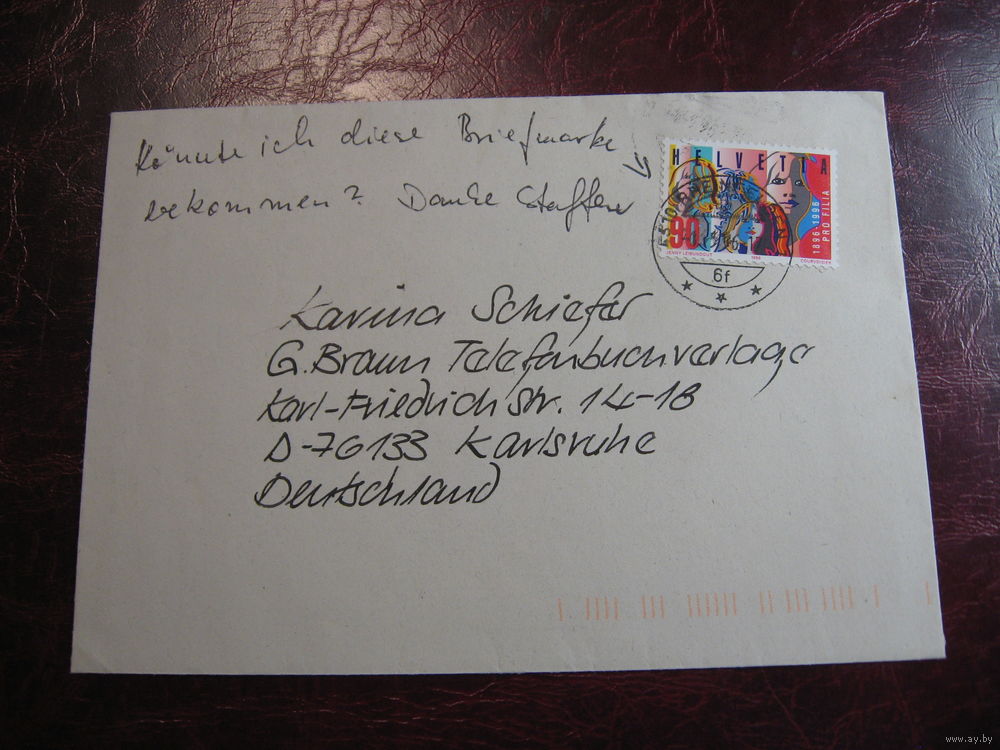 Könnte ich diese Briefmarke
bekommen? Danke
HELVETIA
90
1896-1996
PRO FILIA
JENNY LEIBUNDGUT
1996
COURVOISIER
6f
Karina Schiefer
G. Braun Telefonbuchverlage
Karl-Friedrich Str. 14-18
D-76133 Karlsruhe
Deutschland
www.ay.by